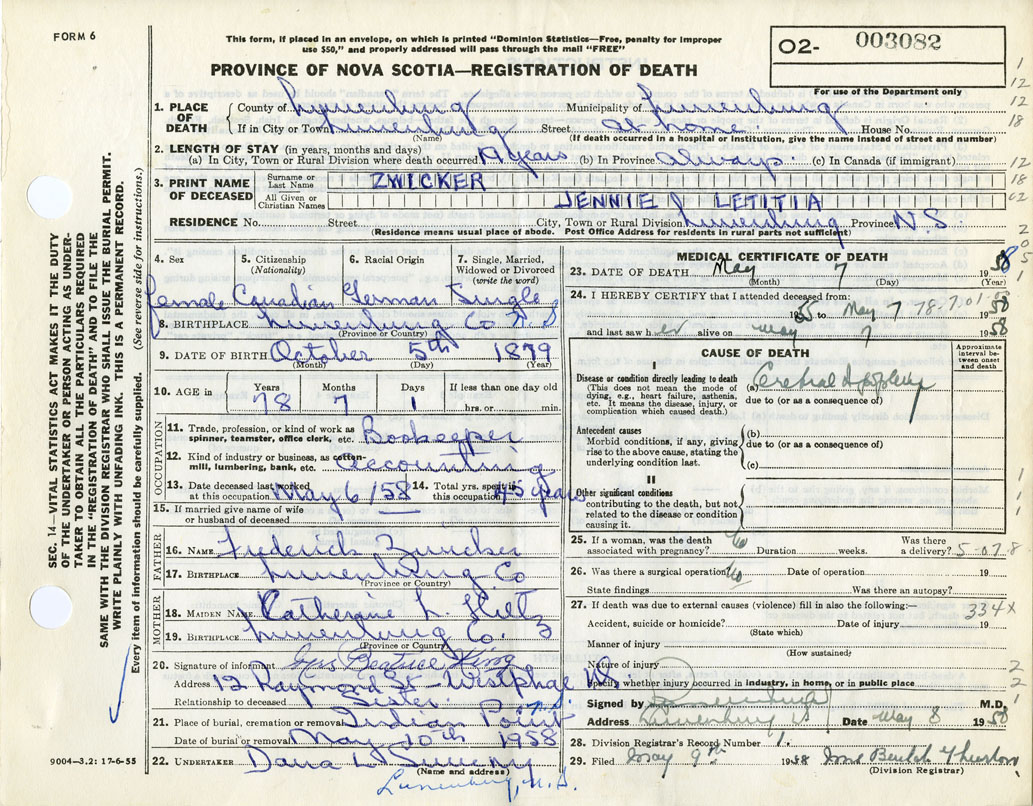 FORM 6
This form, if placed in an envelope, on which is printed "Dominion Statistics—Free, penalty for improper
use $50," and properly addressed will pass through the mail "FREE"
O2- 003082
For use of the Department only
PROVINCE OF NOVA SCOTIA—REGISTRATION OF DEATH
1. PLACE OF DEATH { County of Lunenburg Municipality of Lunenburg
If in City or Town Lunenburg Street at home House No.
(Name) (If death occurred in a hospital or institution, give the name instead of street and number)
2. LENGTH OF STAY (in years, months and days)
(a) In City, Town or Rural Division where death occurred years (b) In Province always. (c) In Canada (if immigrant)
3. PRINT NAME OF DECEASED { Surname or Last Name ZWICKER
All Given or Christian Names JENNIE LETITIA
RESIDENCE No. Street City, Town or Rural Division Lunenburg Province N.S.
(Residence means usual place of abode. Post Office Address for residents in rural parts not sufficient)
4. Sex female
5. Citizenship (Nationality) Canadian
6. Racial Origin German
7. Single, Married, Widowed or Divorced (write the word) Single
8. BIRTHPLACE Lunenburg Co N.S
(Province or Country)
9. DATE OF BIRTH October 5th 1879
(Month) (Day) (Year)
10. AGE in Years 78 Months 7 Days 1 If less than one day old hrs. or min.
OCCUPATION
11. Trade, profession, or kind of work as spinner, teamster, office clerk, etc. Bookeeper
12. Kind of industry or business, as cotton-mill, lumbering, bank, etc. accounting
13. Date deceased last worked at this occupation May 6/58 14. Total yrs. spent in this occupation 45 years
15. If married give name of wife or husband of deceased —
FATHER
16. NAME Frederick Zwicker
17. BIRTHPLACE Lunenburg Co
(Province or Country)
MOTHER
18. MAIDEN NAME Catherine L.
19. BIRTHPLACE Lunenburg Co.
(Province or Country)
20. Signature of informant Mrs Beatrice King
Address 12 Raymond St - Westphal N.S.
Relationship to deceased Sister
21. Place of burial, cremation or removal Indian Point N.S.
Date of burial or removal May 10th 1958
22. UNDERTAKER Dana L Sweeny
(Name and address)
Lunenburg, N.S.
MEDICAL CERTIFICATE OF DEATH
23. DATE OF DEATH May 7 1958
(Month) (Day) (Year)
24. I HEREBY CERTIFY that I attended deceased from:
1955 to May 7 1958
78-7.01
and last saw her alive on May 7 1958
CAUSE OF DEATH
Approximate interval between onset and death
I
Disease or condition directly leading to death
(This does not mean the mode of dying, e.g., heart failure, asthenia, etc. It means the disease, injury, or complication which caused death.)
(a) Cerebral Apoplexy
due to (or as a consequence of)
Antecedent causes
Morbid conditions, if any, giving rise to the above cause, stating the underlying condition last.
(b)
due to (or as a consequence of)
(c)
II
Other significant conditions
contributing to the death, but not related to the disease or condition causing it.
25. If a woman, was the death associated with pregnancy? No Duration weeks. Was there a delivery?
5-07.8
26. Was there a surgical operation? No Date of operation 19
State findings Was there an autopsy?
27. If death was due to external causes (violence) fill in also the following:—
334x
Accident, suicide or homicide? Date of injury 19
(State which)
Manner of injury
(How sustained)
Nature of injury
Specify whether injury occurred in industry, in home, or in public place
Signed by M.D.
Address Lunenburg Date May 8 1958
28. Division Registrar's Record Number 1.
29. Filed May 9th 1958 Mrs
(Division Registrar)
SEC. 14—VITAL STATISTICS ACT MAKES IT THE DUTY
OF THE UNDERTAKER OR PERSON ACTING AS UNDER-
TAKER TO OBTAIN ALL THE PARTICULARS REQUIRED
IN THE "REGISTRATION OF DEATH" AND TO FILE THE
SAME WITH THE DIVISION REGISTRAR WHO SHALL ISSUE THE BURIAL PERMIT.
WRITE PLAINLY WITH UNFADING INK. THIS IS A PERMANENT RECORD.
Every item of information should be carefully supplied. (See reverse side for instructions.)
9004—3.2: 17-6-55